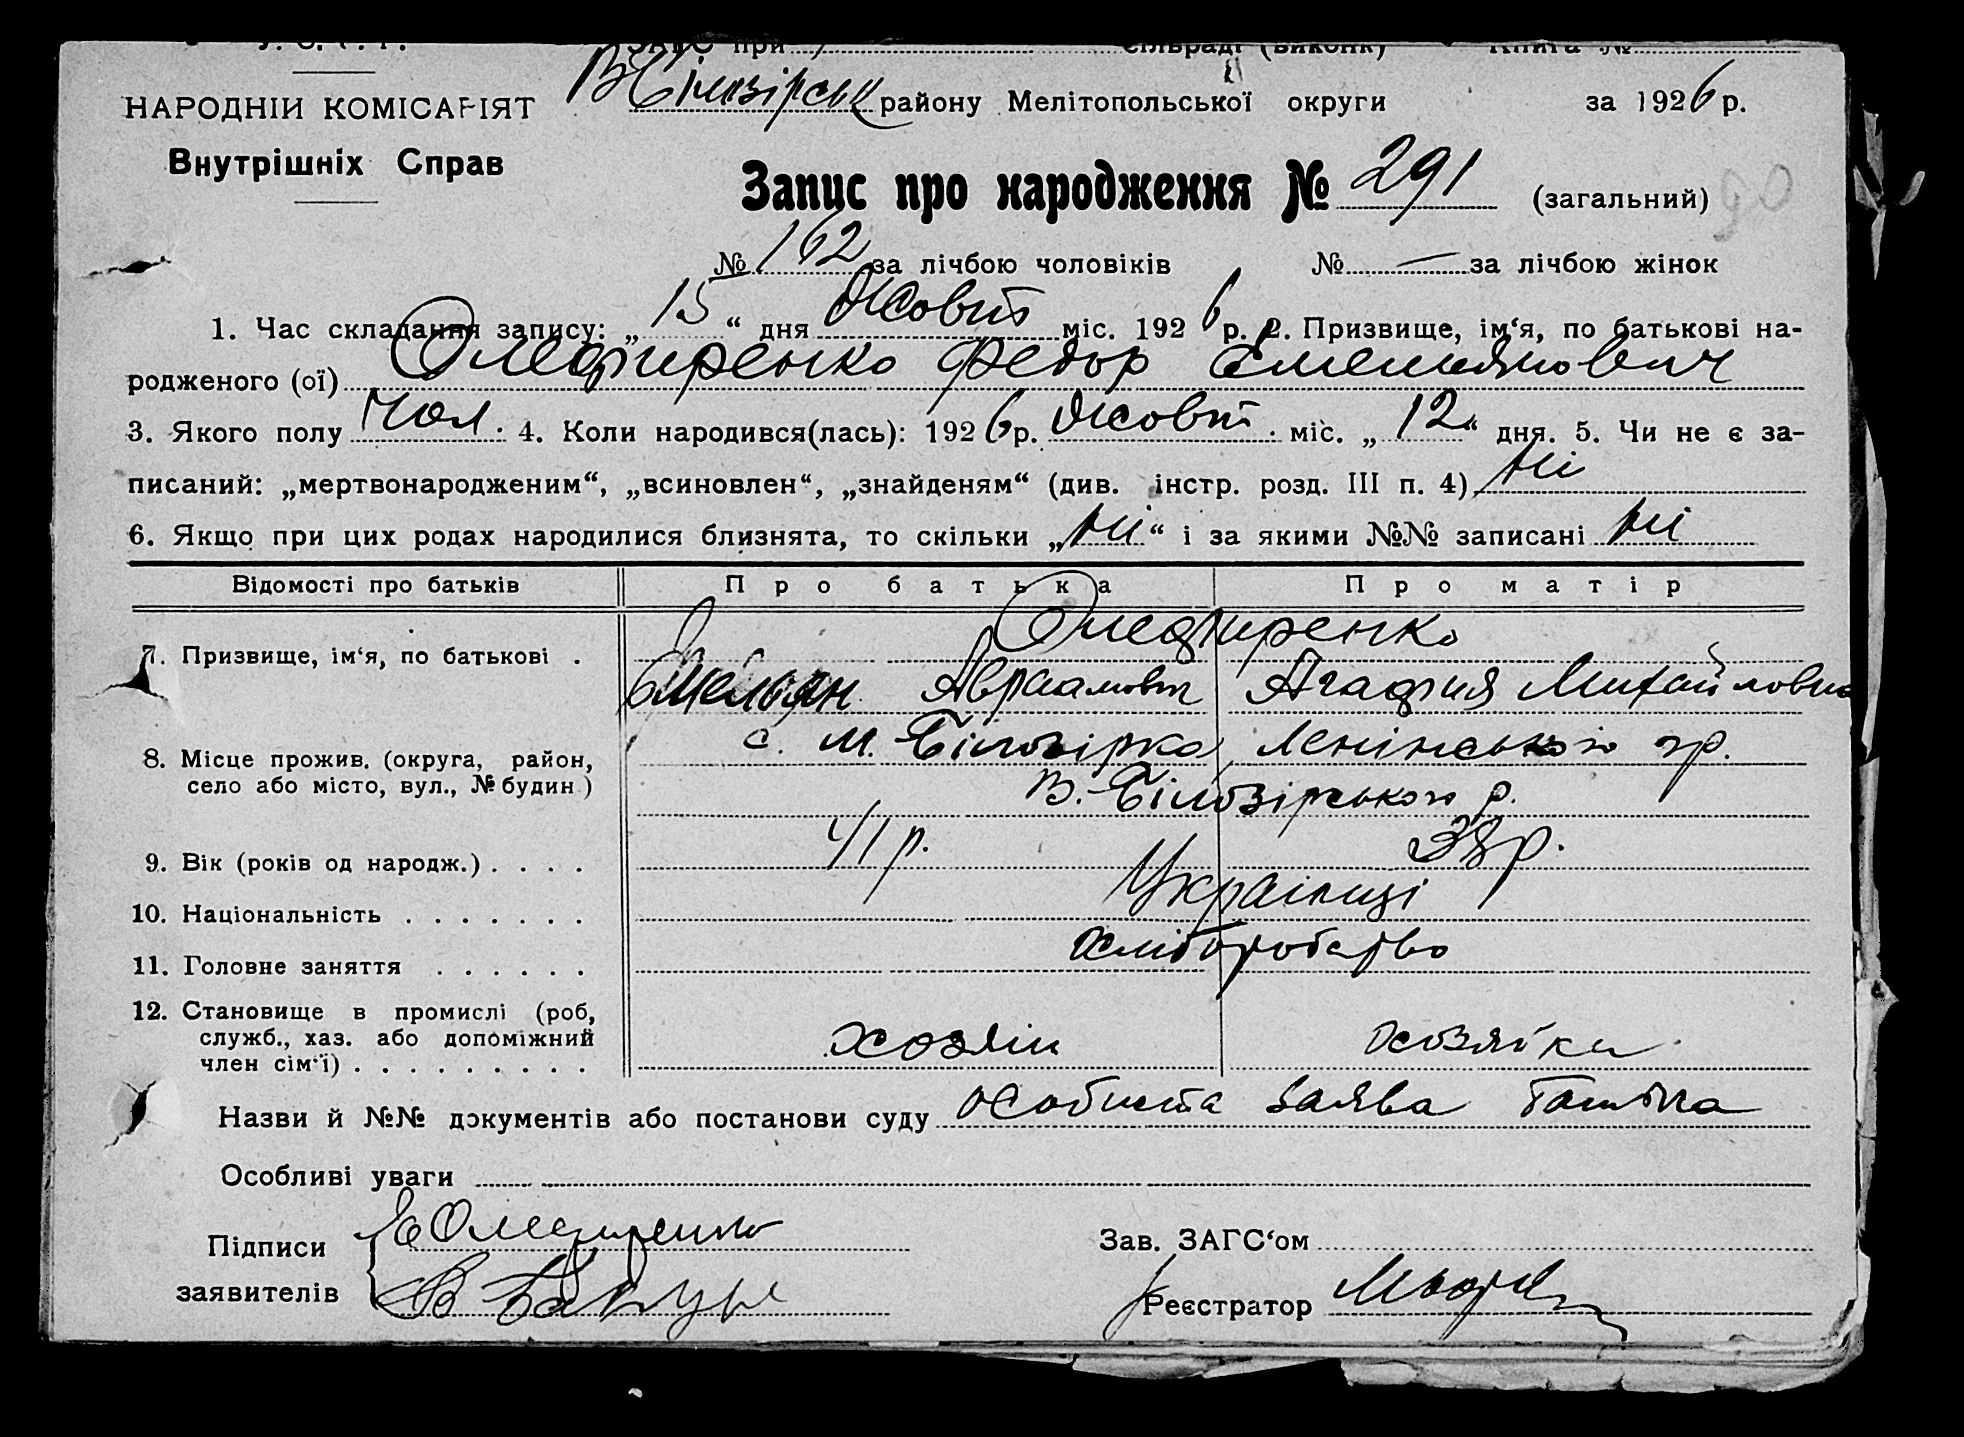 У. С. Р. Р. ЗАГС при сільраді (виконк) Книга №
НАРОДНІЙ КОМІСАРІЯТ
В Білозірськ району Мелітопольської округи за 1926 р.
Внутрішніх Справ
Запис про народження № 291 (загальний)
90
№ 162 за лічбою чоловіків № — за лічбою жінок
1. Час складання запису: „15“ дня Жовт міс. 1926 р. 2. Призвище, ім‘я, по батькові на-
родженого (ої) Олефиренко Федор Емельянович
3. Якого полу Чол. 4. Коли народився(лась): 1926 р. Жовт. міс. „12“ дня. 5. Чи не є за-
писаний: „мертвонародженим“, „всиновлен“, „знайденям“ (див. інстр. розд. III п. 4) Ні
6. Якщо при цих родах народилися близнята, то скільки „Ні“ і за якими №№ записані Ні
Відомості про батьків Про батька Про матір
Олефиренко
7. Призвище, ім‘я, по батькові .
Емельян Авраамович Агафия Михайловна
с. М. Білозірка, Ленінського
8. Місце прожив. (округа, район,
село або місто, вул., № будин)
В.-Білозірського р.
9. Вік (років од народж.) . . . . 41 р. 38 р.
10. Національність . . . . . . . Українці
11. Головне заняття . . . . . . Хліборобство
12. Становище в промислі (роб,
служб., хаз. або допоміжний
член сім‘ї) . . . . . . . . . хозяін хозяйка
Назви й №№ документів або постанови суду Особиста заява батька
Особливі уваги
Підписи Е Олефиренко Зав. ЗАГС‘ом
заявителів
Реєстратор